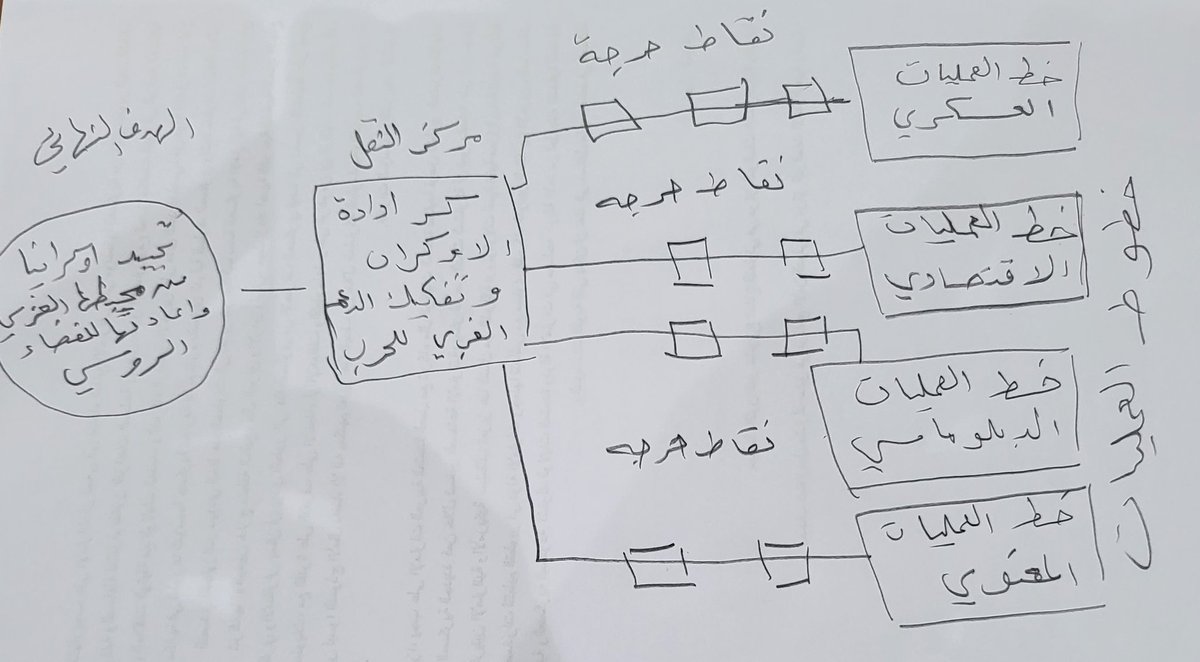 نقاط حرجة
خط العمليات
العسكري
الهدف النهائي
مركز الثقل
نقاط حرجه
كسر ادادة
الاوكران
وتفكيك الدعم
الغربي للحرب
تحييد اوكرانيا
من محيطها الغربي
واعادتها للفضاء
الروسي
خط العمليات
الاقتصادي
خطوط العمليات
خط العمليات
الدبلوماسي
نقاط حرجه
خط العمليات
المعنوي